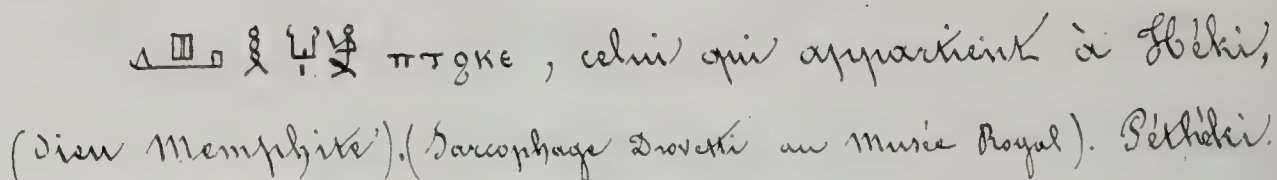 ⲡⲧϩⲕⲉ, celui qui appartient à Héki,
(Dieu Memphite).(Sarcophage Drovetti au Musée Royal). Péthéki.